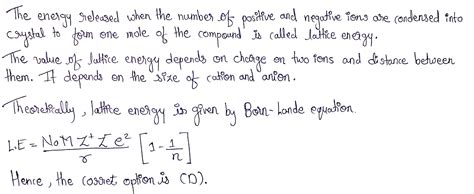 The energy released when the number of positive and negative ions are condensed into
crystal to form one mole of the compound is called lattice energy.
The value of lattice energy depends on charge on two ions and distance between
them. It depends on the size of cation and anion.
Theoretically, lattice energy is given by Born-Lande equation.
L.E = N₀M Z⁺ Z⁻ e² / r [1 - 1/n]
Hence, the correct option is (D).